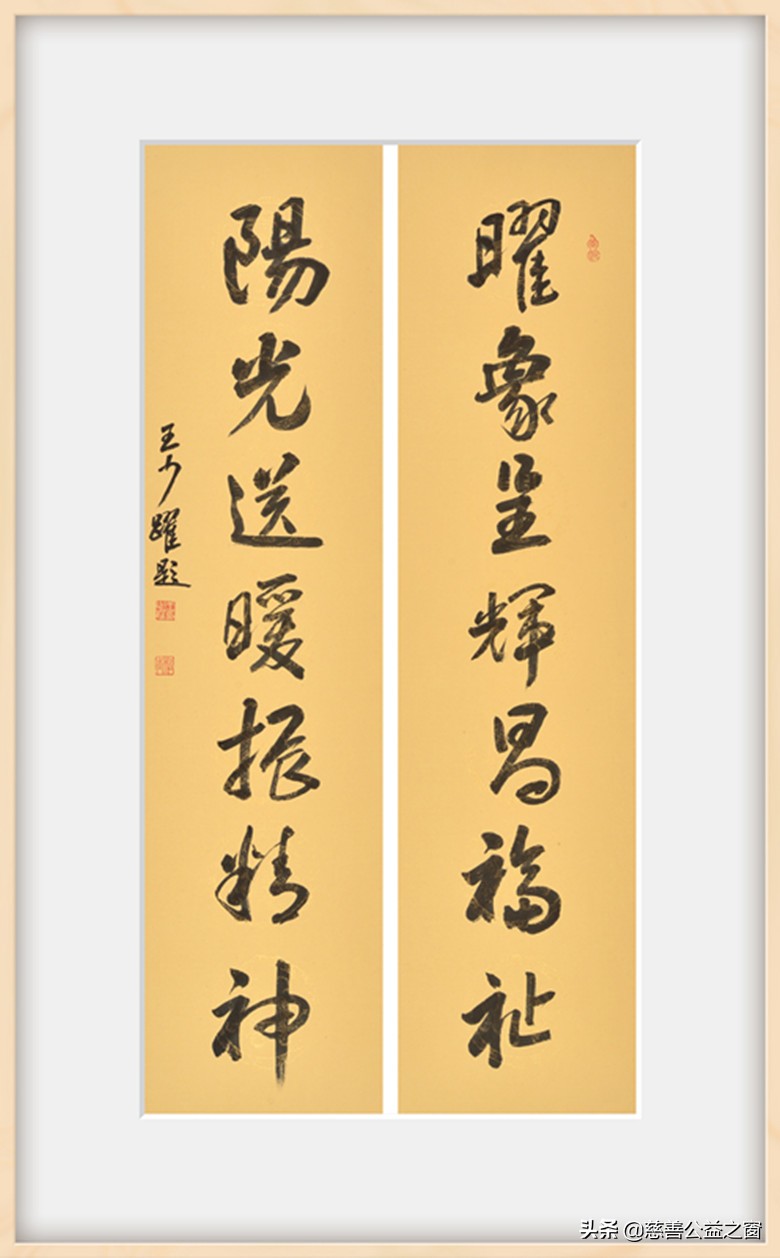 曜象呈輝昌福祉
陽光送暖振精神
王少躍題
头条 @慈善公益之窗